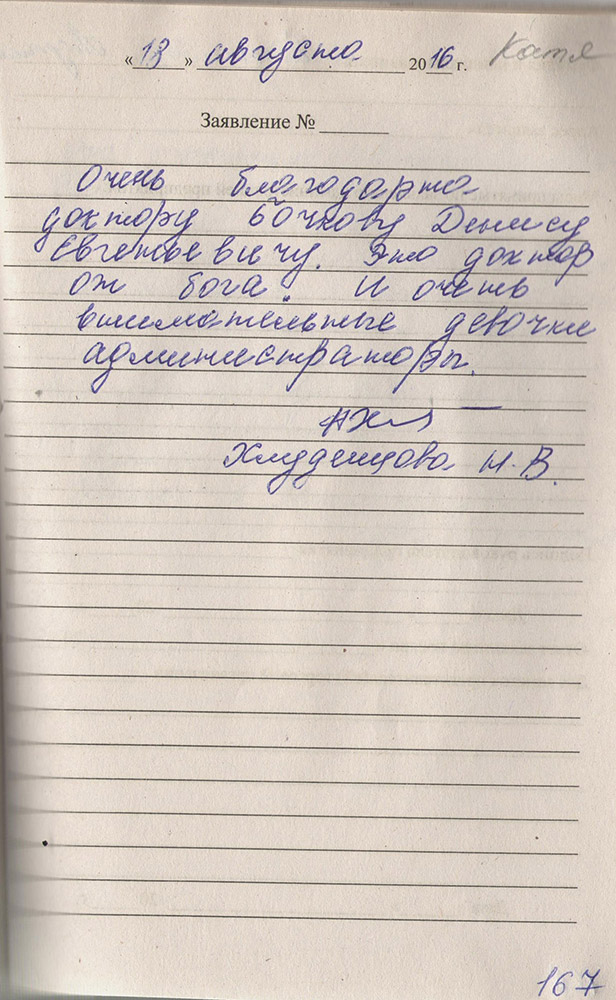 « 13 » августа 2016 г. Катя
Заявление №
Очень благодарна
доктору Бочкову Денису
Евгеньевичу. Это доктор
от бога. И очень
внимательные девочки
администраторы.
Н.В.
167